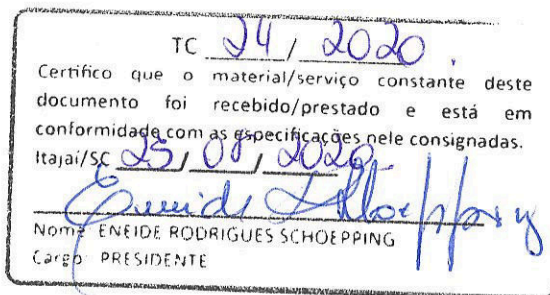 TC 24 / 2020.
Certifico que o material/serviço constante deste
documento foi recebido/prestado e está em
conformidade com as especificações nele consignadas.
Itajaí/SC 25 / 05 / 2020
Eneide Schoepping
Nome ENEIDE RODRIGUES SCHOEPPING
Cargo PRESIDENTE